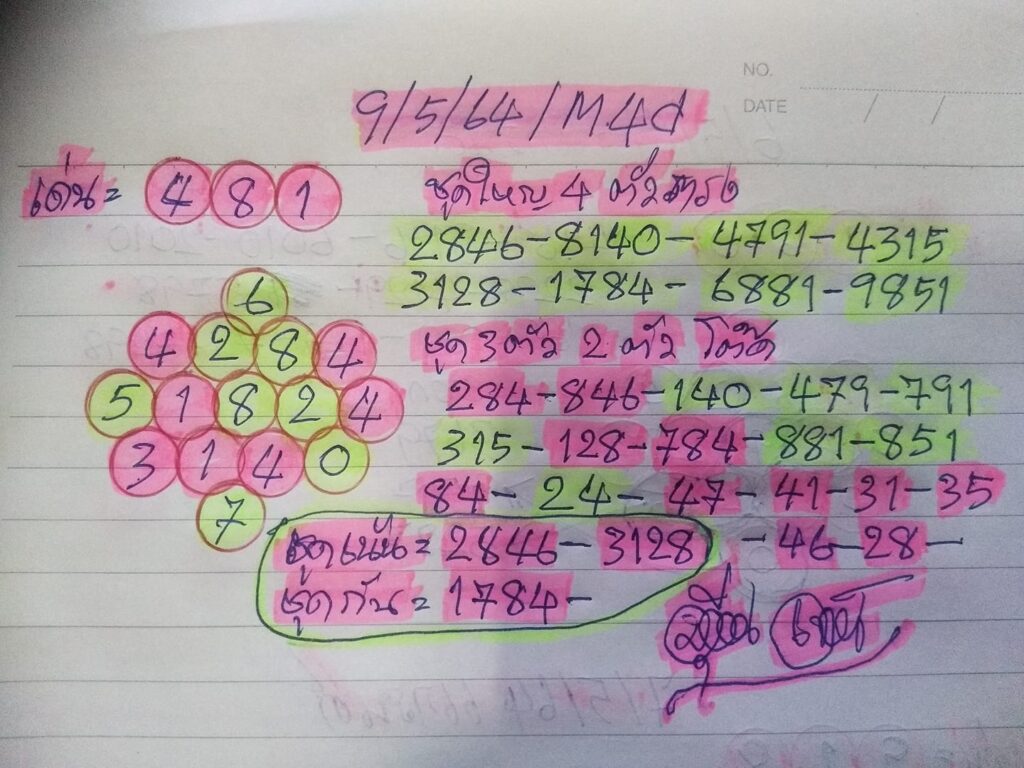 NO.
DATE / /
9/5/64/M4d
เด่น= 4 8 1
ชุดใหญ่ 4 ตัวตรง
2846-8140-4791-4315
3128-1784-6881-9851
6
4 2 8 4
5 1 8 2 4
3 1 4 0
7
ชุด 3 ตัว 2 ตัว โต๊ด
284-846-140-479-791
315-128-784-881-851
84-24-47-41-31-35
-46-28-
ชุดเน้น= 2846-3128
ชุดกัน= 1784-